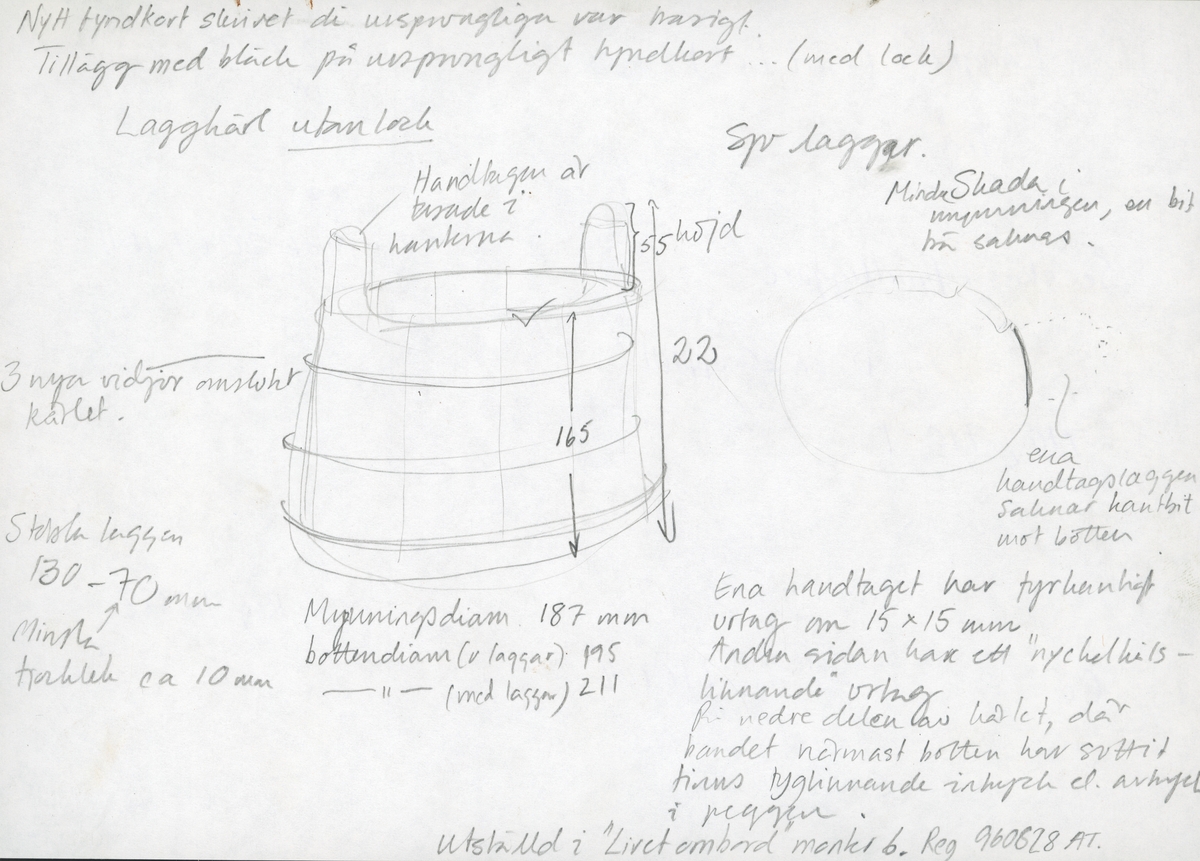 Nytt fyndkort skrivet då ursprungliga var trasigt.
Tillägg med bläck på ursprungligt fyndkort ... (med lock)
Laggkärl utan lock
Sju laggar.
Handtagen är
i
hankarna.
Mindre Skada i
mynningen, en bit
trä saknas.
55 höjd
22
165
3 nya vidjor omslutit
kärlet.
ena
handtagslaggen
saknar kantbit
mot botten
Största laggen
130 - 70 mm
Minsta
tjocklek ca 10 mm
Mynningsdiam. 187 mm
bottendiam (u laggar) 195
— " — (med laggar) 211
Ena handtaget har fyrkantigt
urtag om 15 x 15 mm
Andra sidan har ett "nyckelhåls-
liknande" urtag
På nedre delen av kärlet, där
bandet närmast botten har suttit
finns liknande intryck el. avtryck
i
Utställd i "Livet ombord" monter 6. Reg 960828 AT.